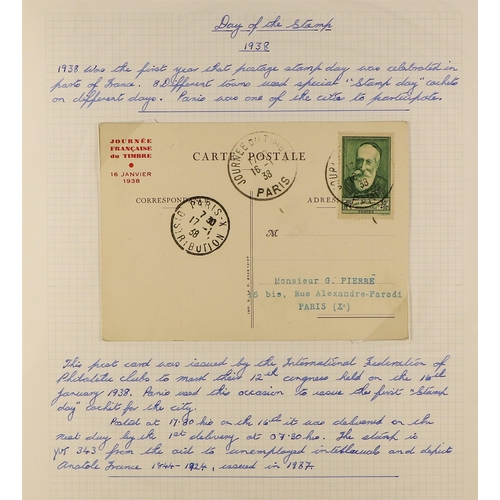 Day of the Stamp
1938
1938 was the first year that postage stamp day was celebrated in
parts of France. 8 Different towns used special "Stamp day" cachets
on different days. Paris was one of the cities to participate.
JOURNÉE
FRANÇAISE
du TIMBRE
16 JANVIER
1938
CARTE POSTALE
JOURNÉE DU TIMBRE
16-1
38
PARIS
CORRESPON
ADRES
PARIS-X
7 30
17-1
38
DISTRIBUTION
M
Monsieur G. PIERRE
15 bis, Rue Alexandre-Parodi
PARIS (Xe)
This post card was issued by the International Federation of
Philatelic clubs to mark their 12th congress held on the 16th
January 1938. Paris used this occasion to issue the first "Stamp
day" cachet for the city.
Posted at 17:30 hrs on the 16th it was delivered on the
next day by the 1st delivery at 07:30 hrs. The stamp is
yvt 343 from the aid to unemployed intellectuals and depict
Anatole France 1844-1924, issued in 1937.